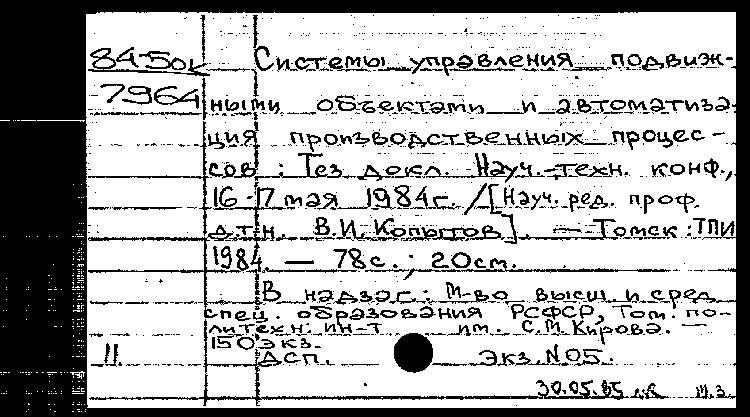 84-5ок Системы управления подвиж-
7964 ными объектами и автоматиза-
ция производственных процес-
сов : Тез докл. Науч.-техн. конф.,
16-17 мая 1984г. /[Науч. ред. проф.
д.т.н. В.И. Копытов]. — Томск : ТПИ
1984. — 78с. ; 20см.
В надзаг.: М-во высш. и сред
спец. образования РСФСР, Том. по-
литехн. ин-т им. С.М. Кирова. —
150 экз.
11. ДСП. Экз. N05.
30.05.85